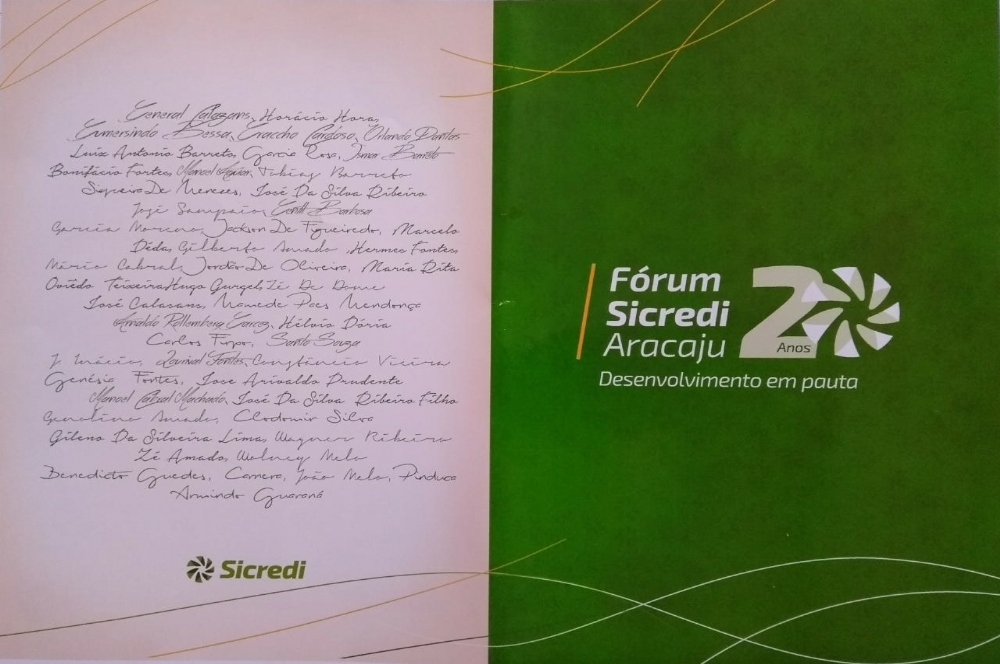 General Calazans, Horácio Hora,
Gumersindo Bessa, Graccho Cardoso, Orlando Dantas
Luiz Antonio Barreto, Garcia Rosa, Ismar Barreto
Bonifácio Fortes, Manoel Aguiar, Tobias Barreto
Siqueira De Menezes, José Da Silva Ribeiro
José Sampaio, Barbosa
Garcia Moreno, Jackson De Figueiredo, Marcelo
Déda, Gilberto Amado, Hermes Fontes
Mário Cabral, Jordão De Oliveira, Maria Rita
Oviêdo Teixeira, Hugo Gurgel, Zé De Dome
José Calasans, Mamede Paes Mendonça
Arnaldo Rollemberg Garcez, Hélvio Dória
Carlos Firpo, Santo Souza
J. Inácio, Lourival Fontes, Constâncio Vieira
Genésio Fontes, Jose Arivaldo Prudente
Manoel Cabral Machado, José Da Silva Ribeiro Filho
Genolino Amado, Clodomir Silva
Gileno Da Silveira Lima, Wagner Ribeiro
Zé Amado, Wolney Melo
Benedicto Guedes, Carrera, João Melo, Pinduca
Armindo Guaraná
Sicredi
Fórum
Sicredi
Aracaju
20
Anos
Desenvolvimento em pauta